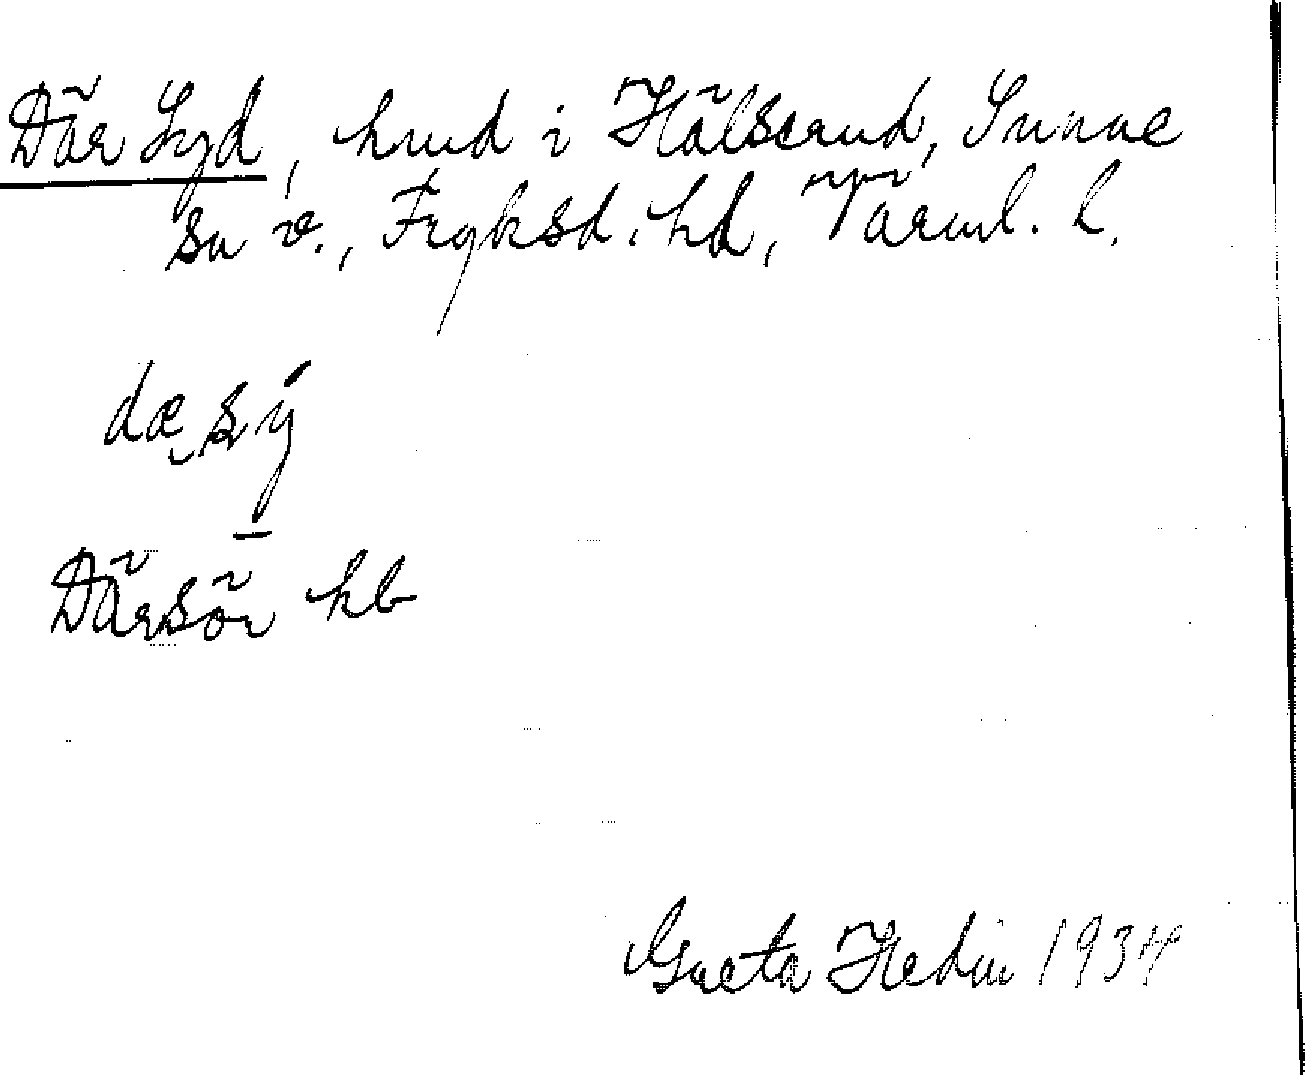 Där Syd, hmd i Hälserud, Sunne
sn v., Fryksd. hd, Värml. l.
dæ sý
Därsör hb
Greta Hedin 1934